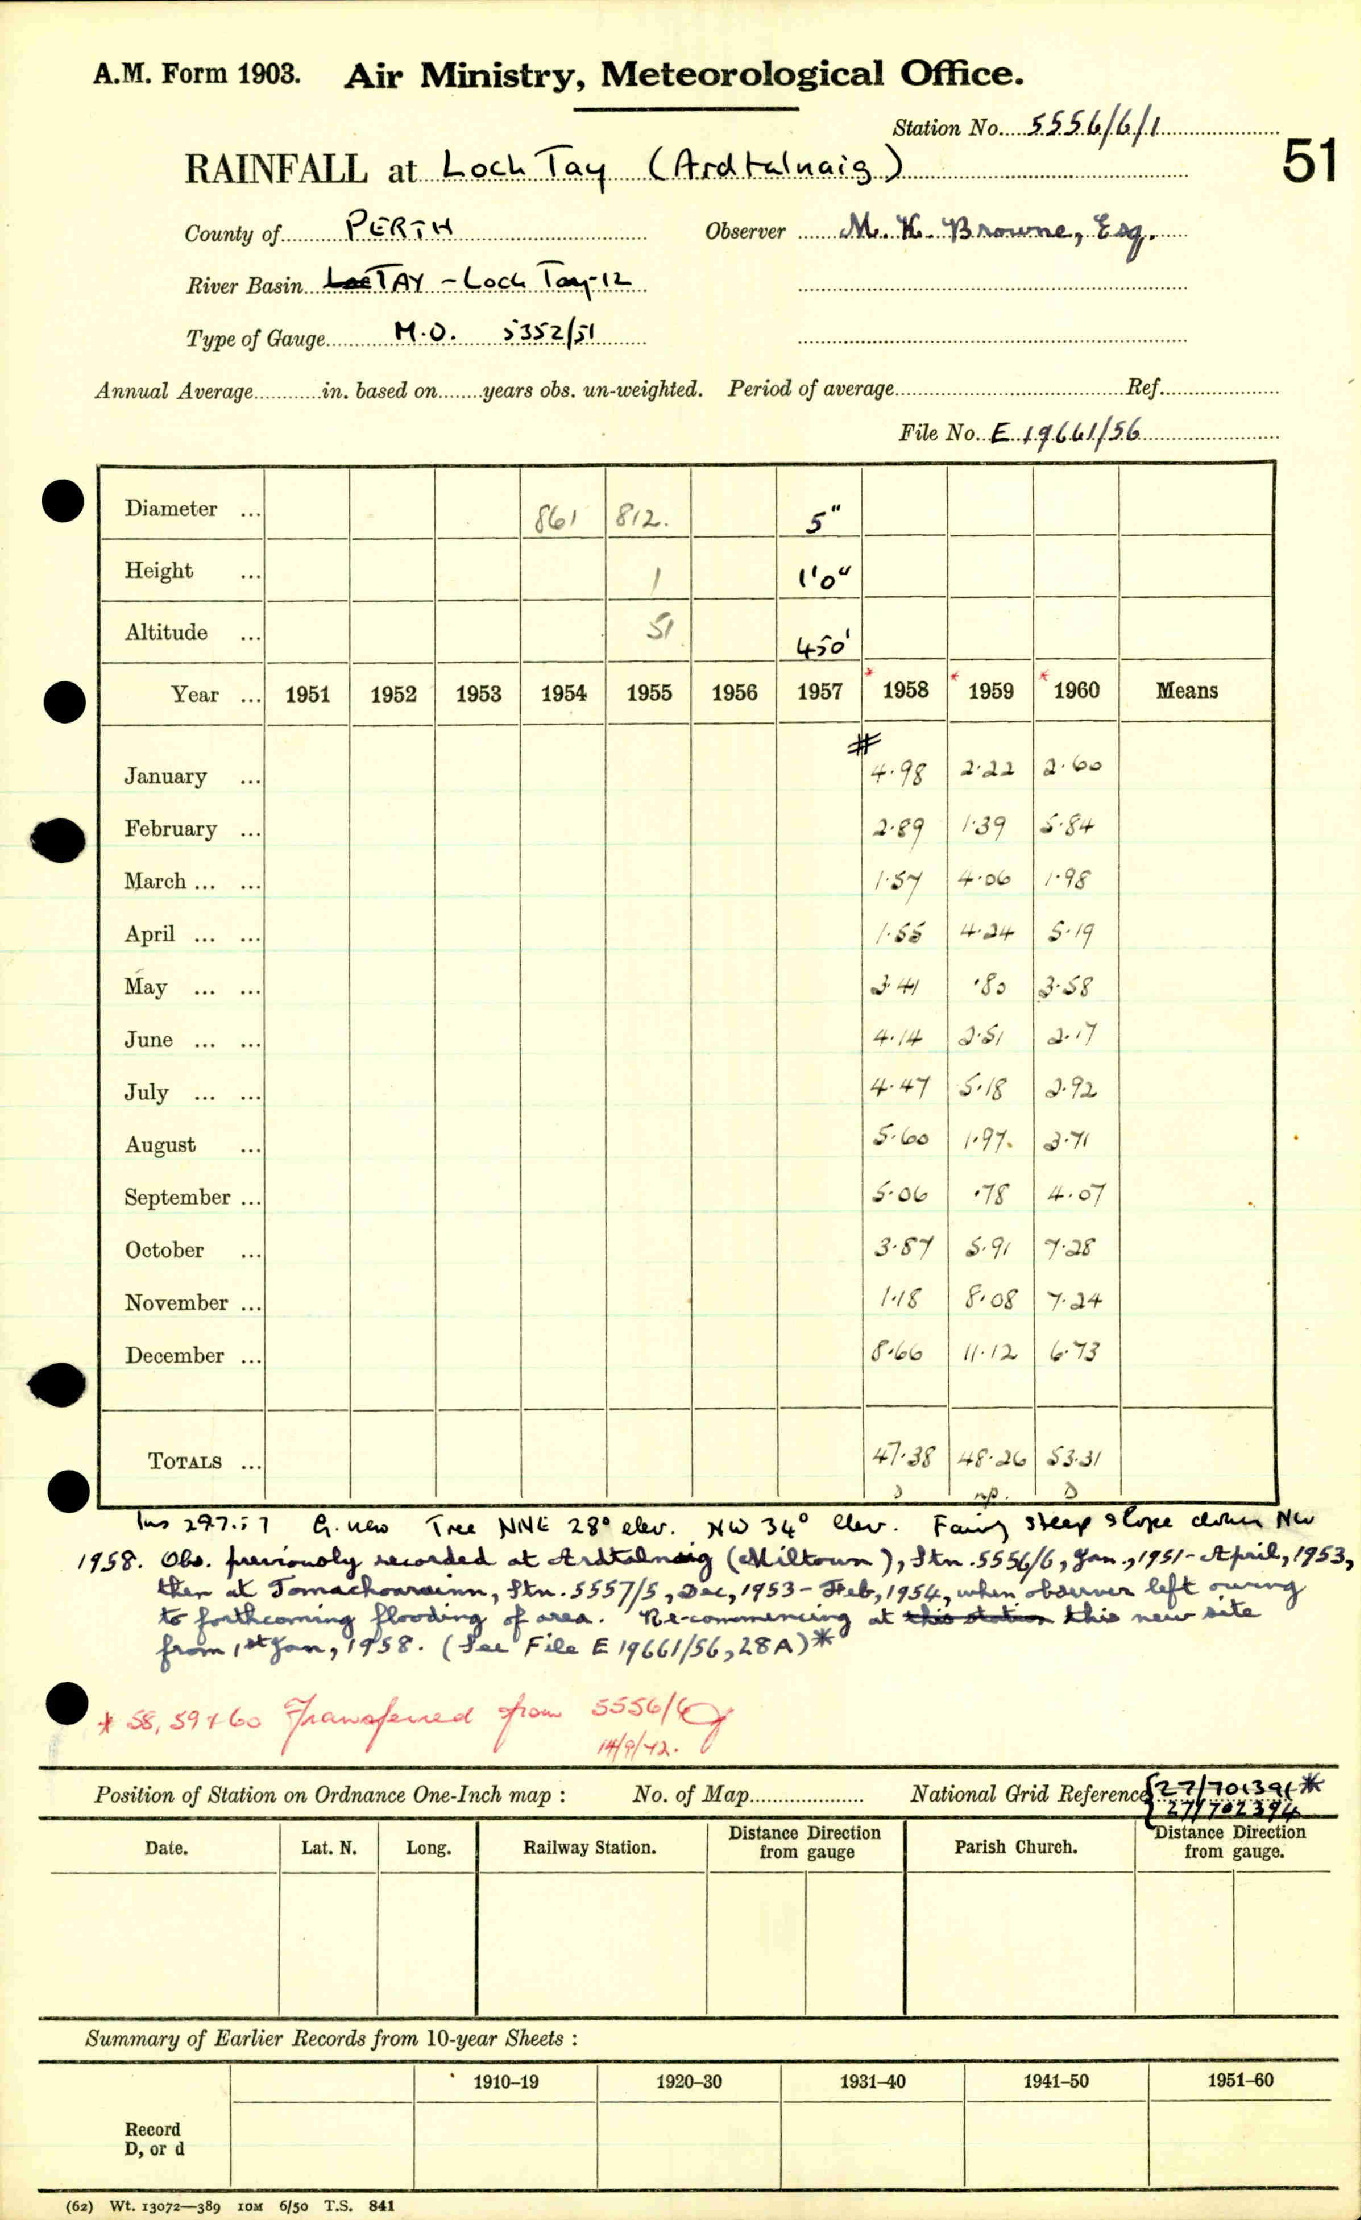 A.M. Form 1903. Air Ministry, Meteorological Office.
Station No. 5556/6/1
51
RAINFALL at Loch Tay (Ardtalnaig)
County of PERTH Observer M. K. Browne, Esq.
River Basin TAY - Loch Tay-12
Type of Gauge M.O. 5352/51
Annual Average in. based on years obs. un-weighted. Period of average Ref.
File No. E 19661/56
Diameter ... 861 812. 5"
Height ... 1 1'0"
Altitude ... 51 450'
Year ... 1951 1952 1953 1954 1955 1956 1957 * 1958 * 1959 * 1960 Means
#
January ... 4.98 2.22 2.60
February ... 2.89 1.39 5.84
March ... ... 1.57 4.06 1.98
April ... ... 1.55 4.24 5.19
May ... ... 3.41 .80 3.58
June ... ... 4.14 2.51 2.17
July ... ... 4.47 5.18 2.92
August ... 5.60 1.97 3.71
September ... 5.06 .78 4.07
October ... 3.87 5.91 7.28
November ... 1.18 8.08 7.24
December ... 8.66 11.12 6.73
TOTALS ... 47.38 48.26 53.31
Ins 29.7.57 G. new Tree NNE 28° elev. NW 34° elev. Facing steep slope down NW
1958. Obs. previously recorded at Ardtalnaig (Miltown), Stn. 5556/6, Jan., 1951 - April, 1953,
then at Stn. 5557/5, Dec, 1953 - Feb, 1954, when observer left owing
to forthcoming flooding of area. Re-commencing at this station this new site
from 1st Jan, 1958. (See File E 19661/56, 28A)*
* 58, 59 & 60 Transferred from 5556/6
14/9/72.
Position of Station on Ordnance One-Inch map : No. of Map National Grid Reference 27/701391*
27/702394
Date. Lat. N. Long. Railway Station. Distance Direction from gauge Parish Church. Distance Direction from gauge.
Summary of Earlier Records from 10-year Sheets :
1910–19 1920–30 1931–40 1941–50 1951–60
Record
D, or d
(62) Wt. 13072—389 10M 6/50 T.S. 841